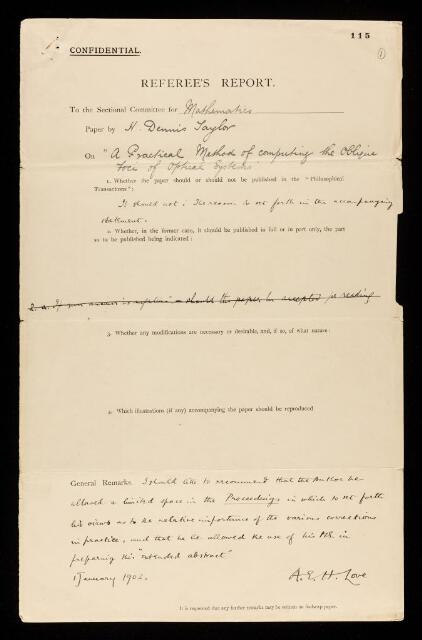 115
CONFIDENTIAL.
1
REFEREE'S REPORT.
To the Sectional Committee for Mathematics
Paper by H. Dennis Taylor
On "A Practical Method of computing the Oblique
Foci of Optical Systems"
1. Whether the paper should or should not be published in the "Philosophical
Transactions":
It should not: The reason is set forth in the accompanying
statement.
2. Whether, in the former case, it should be published in full or in part only, the part
so to be published being indicated:
2. a. If answer is negative should the paper be accepted for reading
3. Whether any modifications are necessary or desirable, and, if so, of what nature:
4. Which illustrations (if any) accompanying the paper should be reproduced
General Remarks. I should like to recommend that the author be
allowed a limited space in the Proceedings in which to set forth
his views as to the relative importance of the various corrections
in practice, and that he be allowed the use of his MS. in
preparing this "extended abstract"
January 1902.
A. E. H. Love
It is requested that any further remarks may be written on foolscap paper.